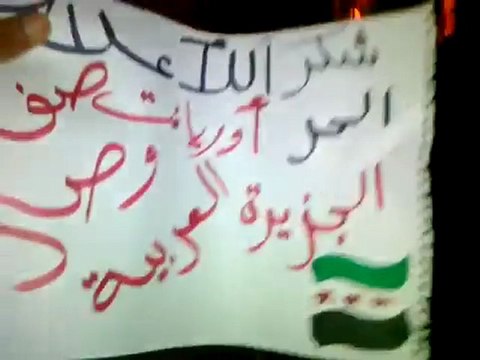 شكر اللاعلا
الحر أوريات صف
وص
الجزيرة العربية